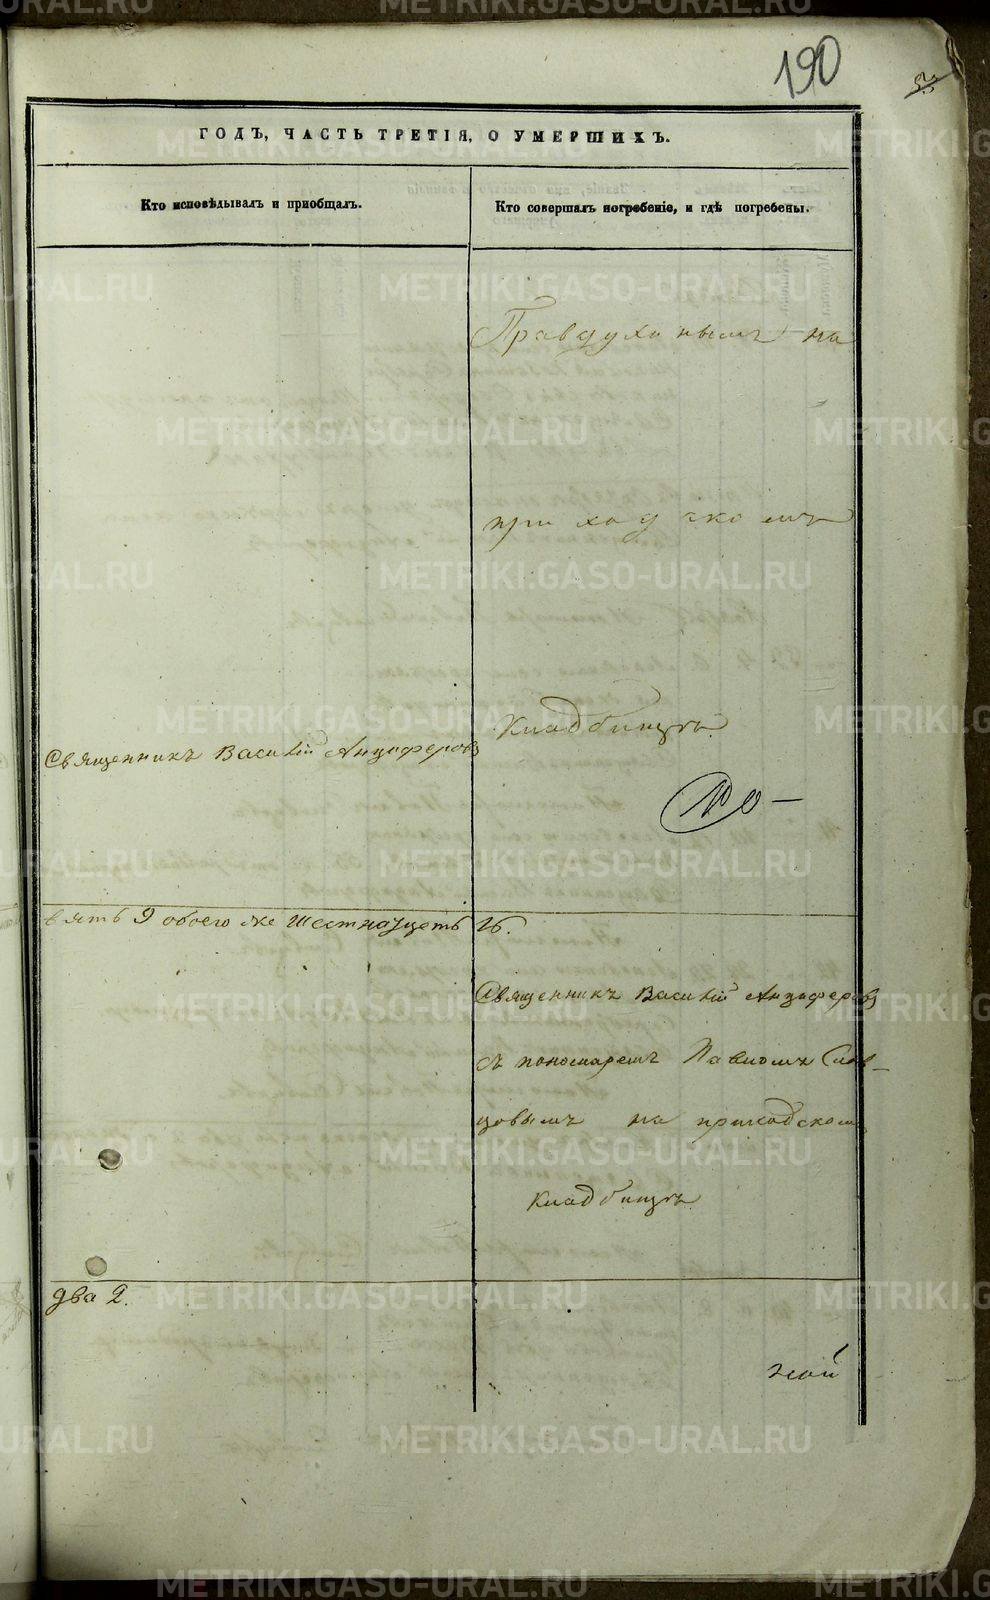 190
ГОДЪ, ЧАСТЬ ТРЕТІЯ, О УМЕРШИХЪ.
Кто исповѣдывалъ и приобщалъ.
Кто совершалъ погребеніе, и гдѣ погребены.
Правдухинымъ на
приходскомъ
Кладбищѣ.
Священникъ Василій Анцыферовъ
вять 9 обоего же шестнадцать 16.
Священникъ Василій Анцыферовъ
съ пономаремъ Павломъ Слов-
цовымъ на приходскомъ
Кладбищѣ
два 2.
METRIKI.GASO-URAL.RU